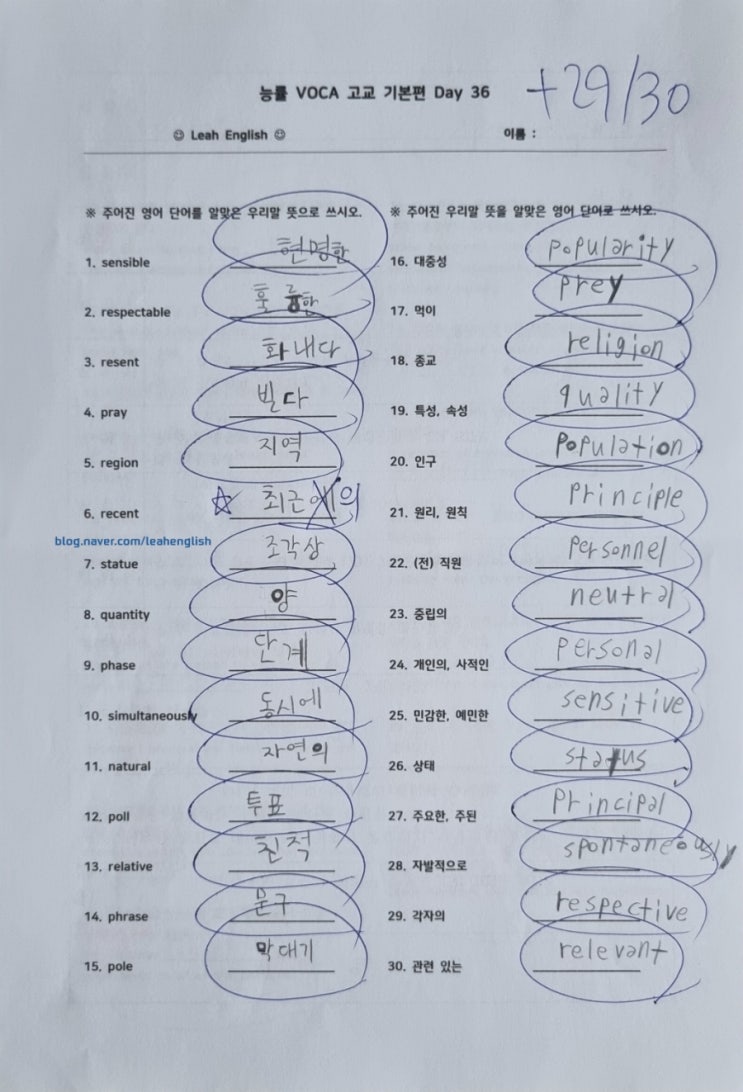 능률 VOCA 고교 기본편 Day 36
+29/30
☺ Leah English ☺
이름 :
※ 주어진 영어 단어를 알맞은 우리말 뜻으로 쓰시오.
1. sensible 현명한
2. respectable 훌륭한
3. resent 화내다
4. pray 빌다
5. region 지역
6. recent ☆ 최근에의
blog.naver.com/leahenglish
7. statue 조각상
8. quantity 양
9. phase 단계
10. simultaneously 동시에
11. natural 자연의
12. poll 투표
13. relative 친척
14. phrase 문구
15. pole 막대기
※ 주어진 우리말 뜻을 알맞은 영어 단어로 쓰시오.
16. 대중성 popularity
17. 먹이 prey
18. 종교 religion
19. 특성, 속성 quality
20. 인구 population
21. 원리, 원칙 principle
22. (전) 직원 personnel
23. 중립의 neutral
24. 개인의, 사적인 personal
25. 민감한, 예민한 sensitive
26. 상태 status
27. 주요한, 주된 principal
28. 자발적으로 spontaneously
29. 각자의 respective
30. 관련 있는 relevant